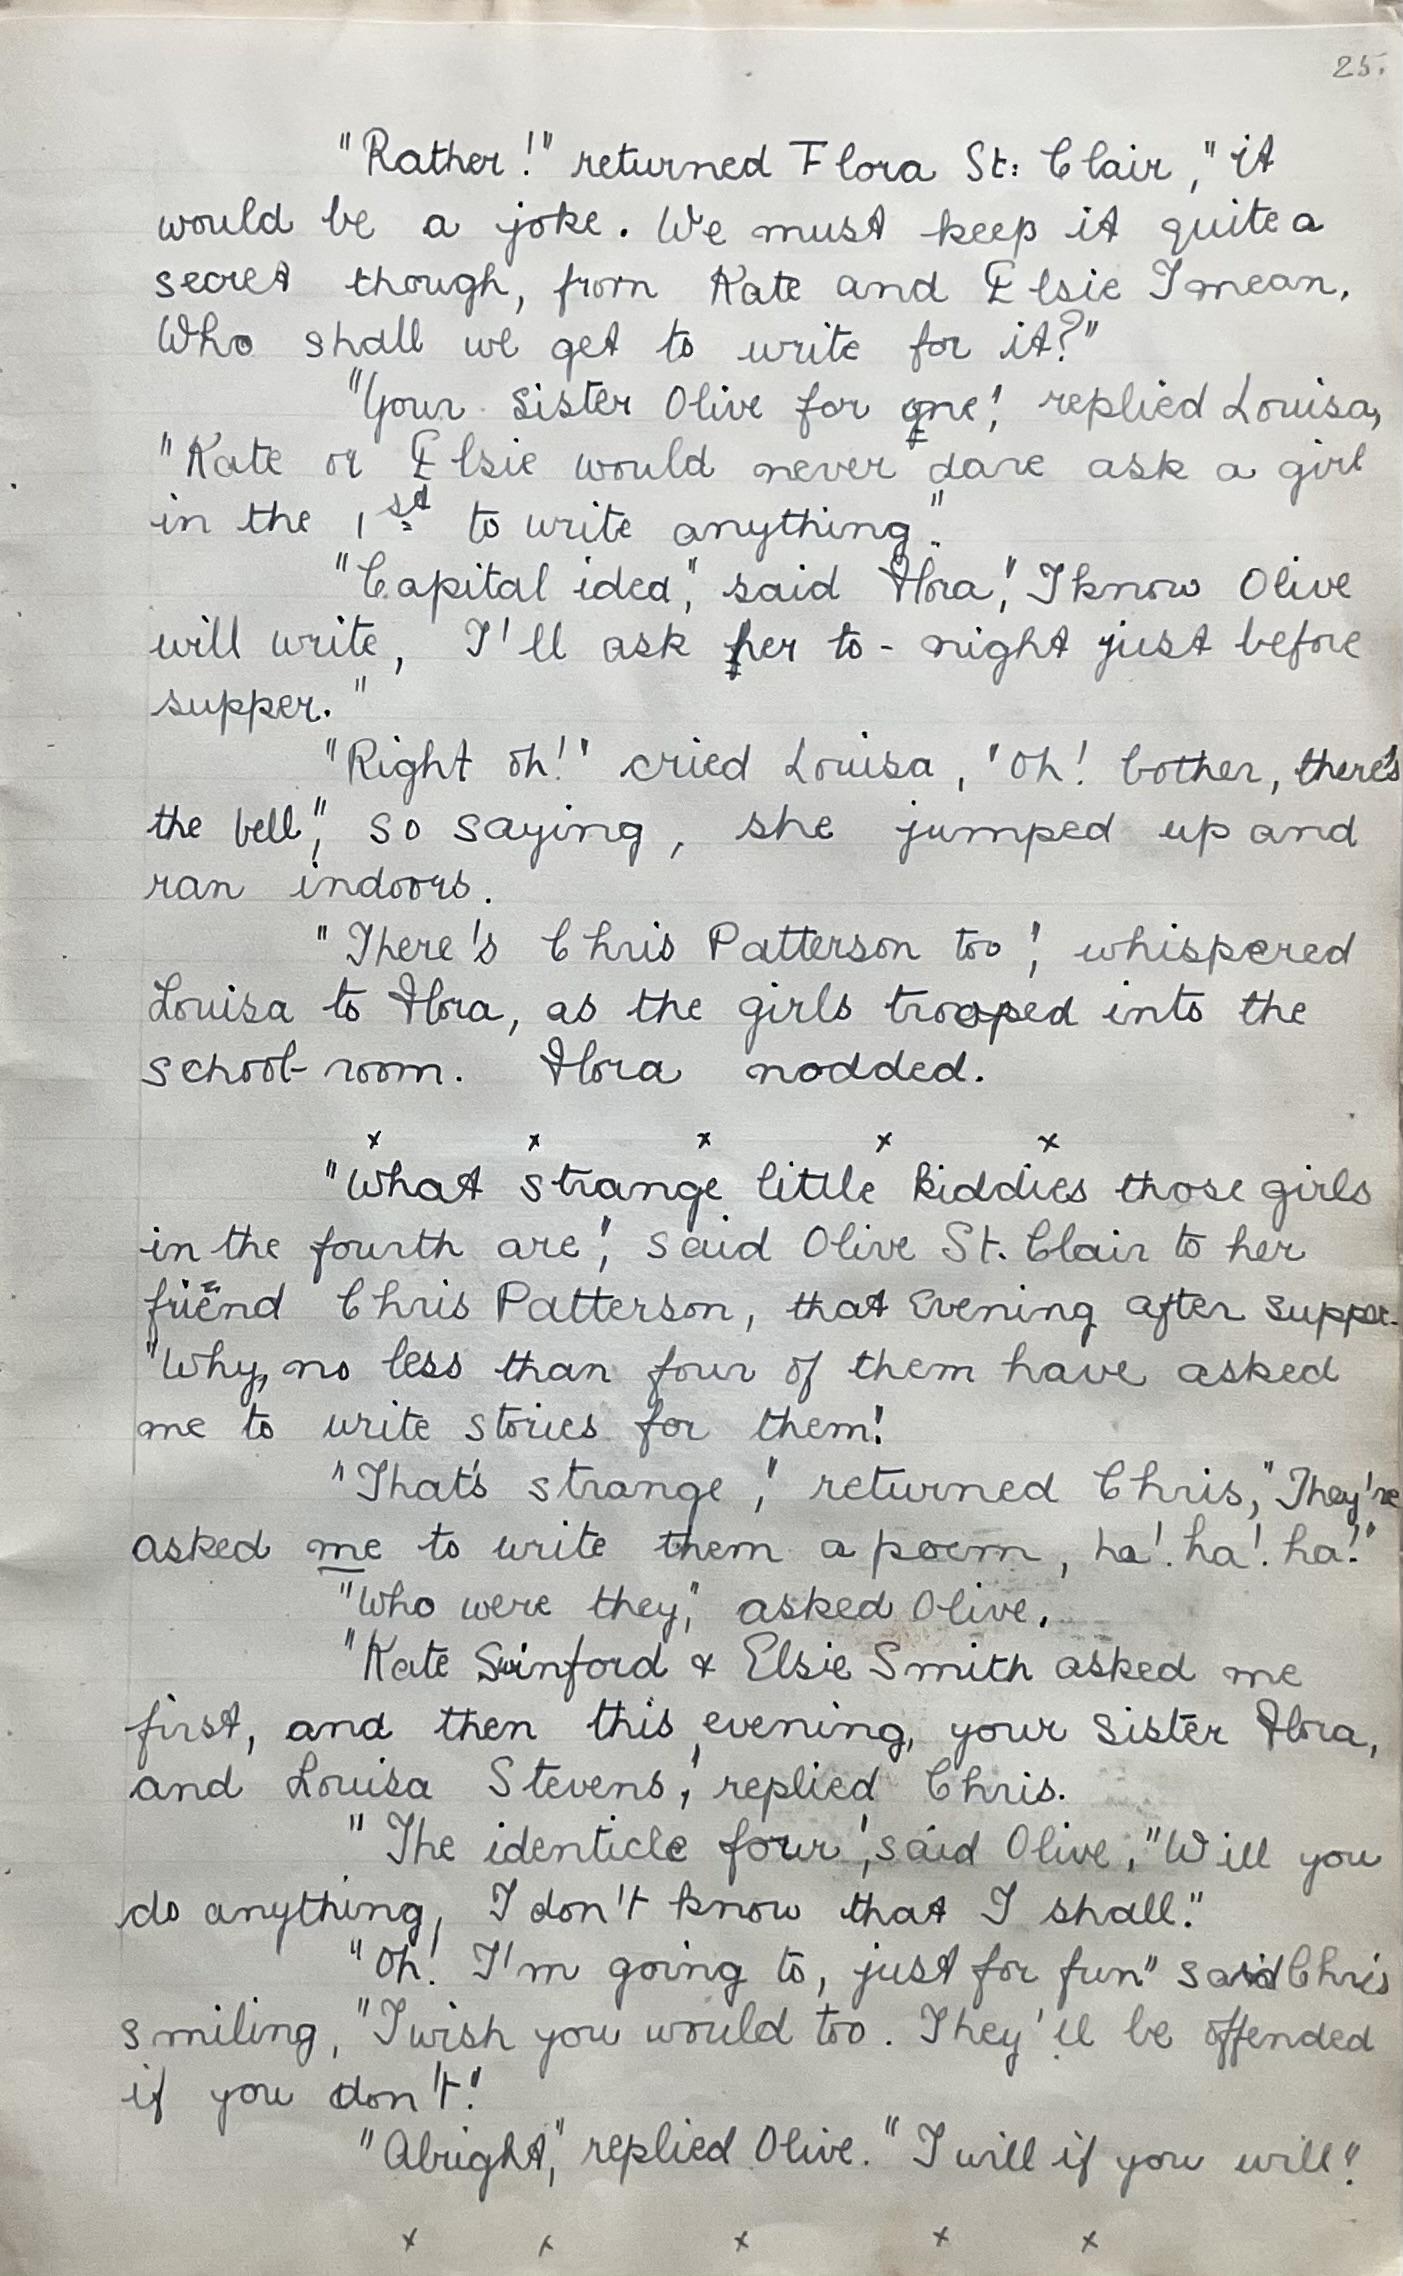 25.
"Rather!" returned Flora St: Clair, "it
would be a joke. We must keep it quite a
secret though, from Kate and Elsie I mean.
Who shall we get to write for it?"
"Your sister Olive for one", replied Louisa,
"Kate or Elsie would never dare ask a girl
in the 1st to write anything".
"Capital idea", said Flora, "I know Olive
will write, I'll ask her to-night just before
supper."
"Right oh!" cried Louisa, "Oh! bother, there's
the bell", so saying, she jumped up and
ran indoors.
"There's Chris Patterson too", whispered
Louisa to Flora, as the girls trooped into the
school-room. Flora nodded.
x x x x x
"What strange little kiddies those girls
in the fourth are", said Olive St. Clair to her
friend Chris Patterson, that evening after supper.
"Why, no less than four of them have asked
me to write stories for them".
"That's strange", returned Chris, "They've
asked me to write them a poem, ha! ha! ha!"
"Who were they", asked Olive.
"Kate Swinford & Elsie Smith asked me
first, and then this evening, your sister Flora,
and Louisa Stevens", replied Chris.
"The identicle four", said Olive, "Will you
do anything, I don't know that I shall."
"Oh! I'm going to, just for fun" said Chris
smiling, "I wish you would too. They'll be offended
if you don't".
"Alright", replied Olive. "I will if you will".
x x x x x